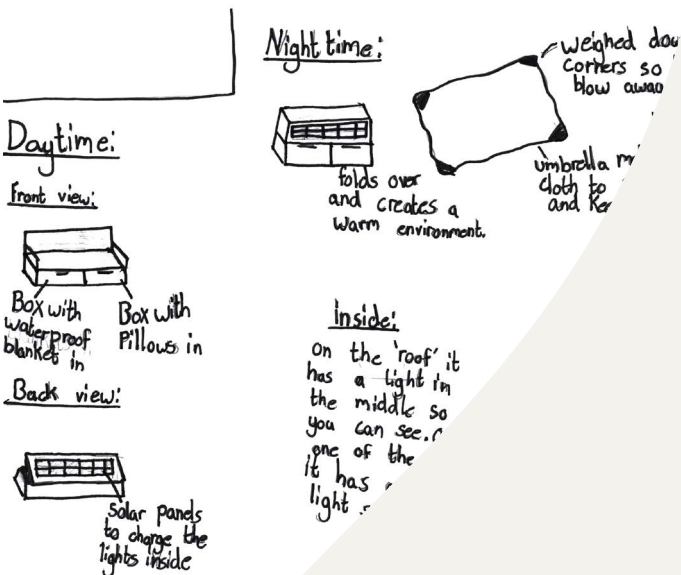 Daytime:
Front view:
Box with
waterproof
blanket in
Box with
Pillows in
Back view:
Solar panels
to charge the
lights inside
Night time:
folds over
and creates a
warm environment.
weighed
corners so
blow
umbrella
cloth to
and
Inside:
on the 'roof' it
has a light in
the middle so
you can see.
one of the
it has
light